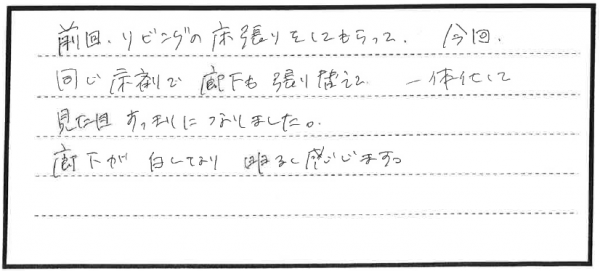 前回、リビングの床張りをしてもらって、今回、
同じ床剤で 廊下も 張り替えて 一体化して
見た目 すっきりに なりました。
廊下が 白くなり 明るく感じます。